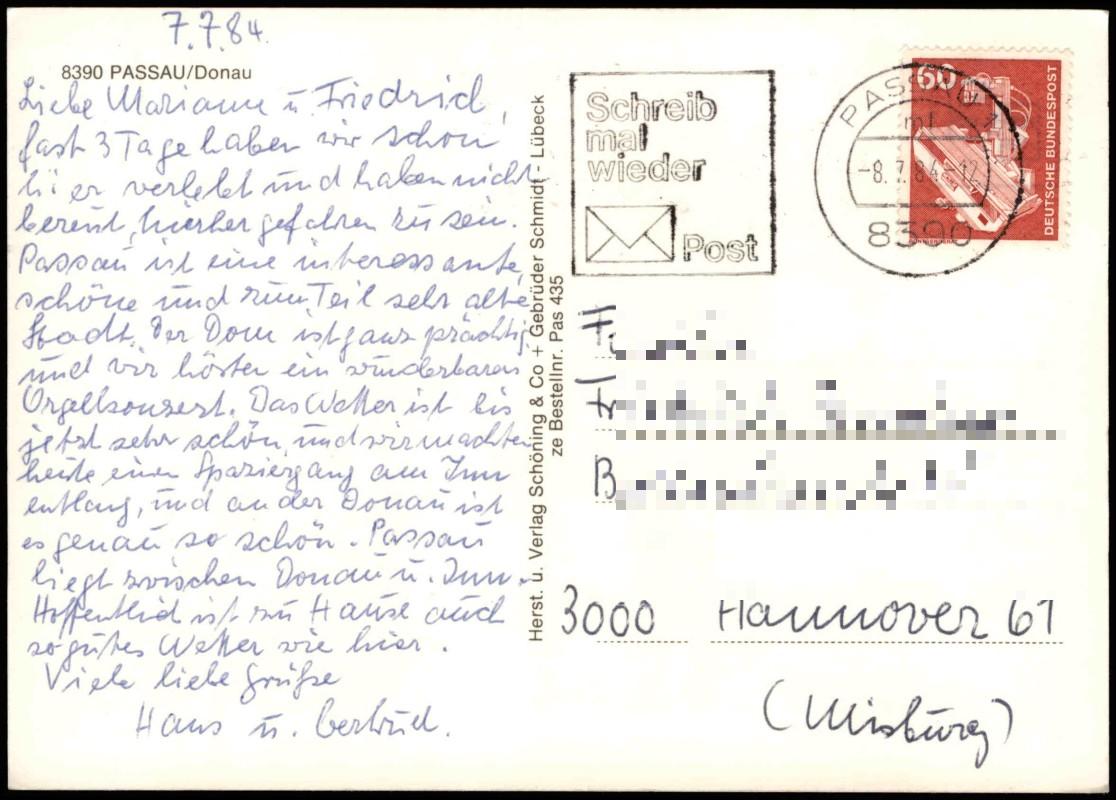 7.7.84.
8390 PASSAU/Donau
Liebe Marianne u. Friedrich,
fast 3 Tage haben wir schon
hier verlebt und haben nicht
bereut, hierher gefahren zu sein.
Passau ist eine interessante,
schöne und zum Teil sehr alte
Stadt. Der Dom ist ganz prächtig
und wir hörten ein wunderbares
Orgelkonzert. Das Wetter ist bis
jetzt sehr schön, und wir machten
heute einen Spaziergang am Inn
entlang, und an der Donau ist
es genau so schön. Passau
liegt zwischen Donau u. Inn.
Hoffentlich ist zu Hause auch
so gutes Wetter wie hier.
Viele liebe Grüße
Hans u. Gertrud.
Herst. u. Verlag Schöning & Co + Gebrüder Schmidt - Lübeck
ze Bestellnr. Pas 435
Schreib
mal
wieder
Post
PASSAU 1
-8.7.84-12
8390
60
DEUTSCHE BUNDESPOST
3000 Hannover 61
(Misburg)